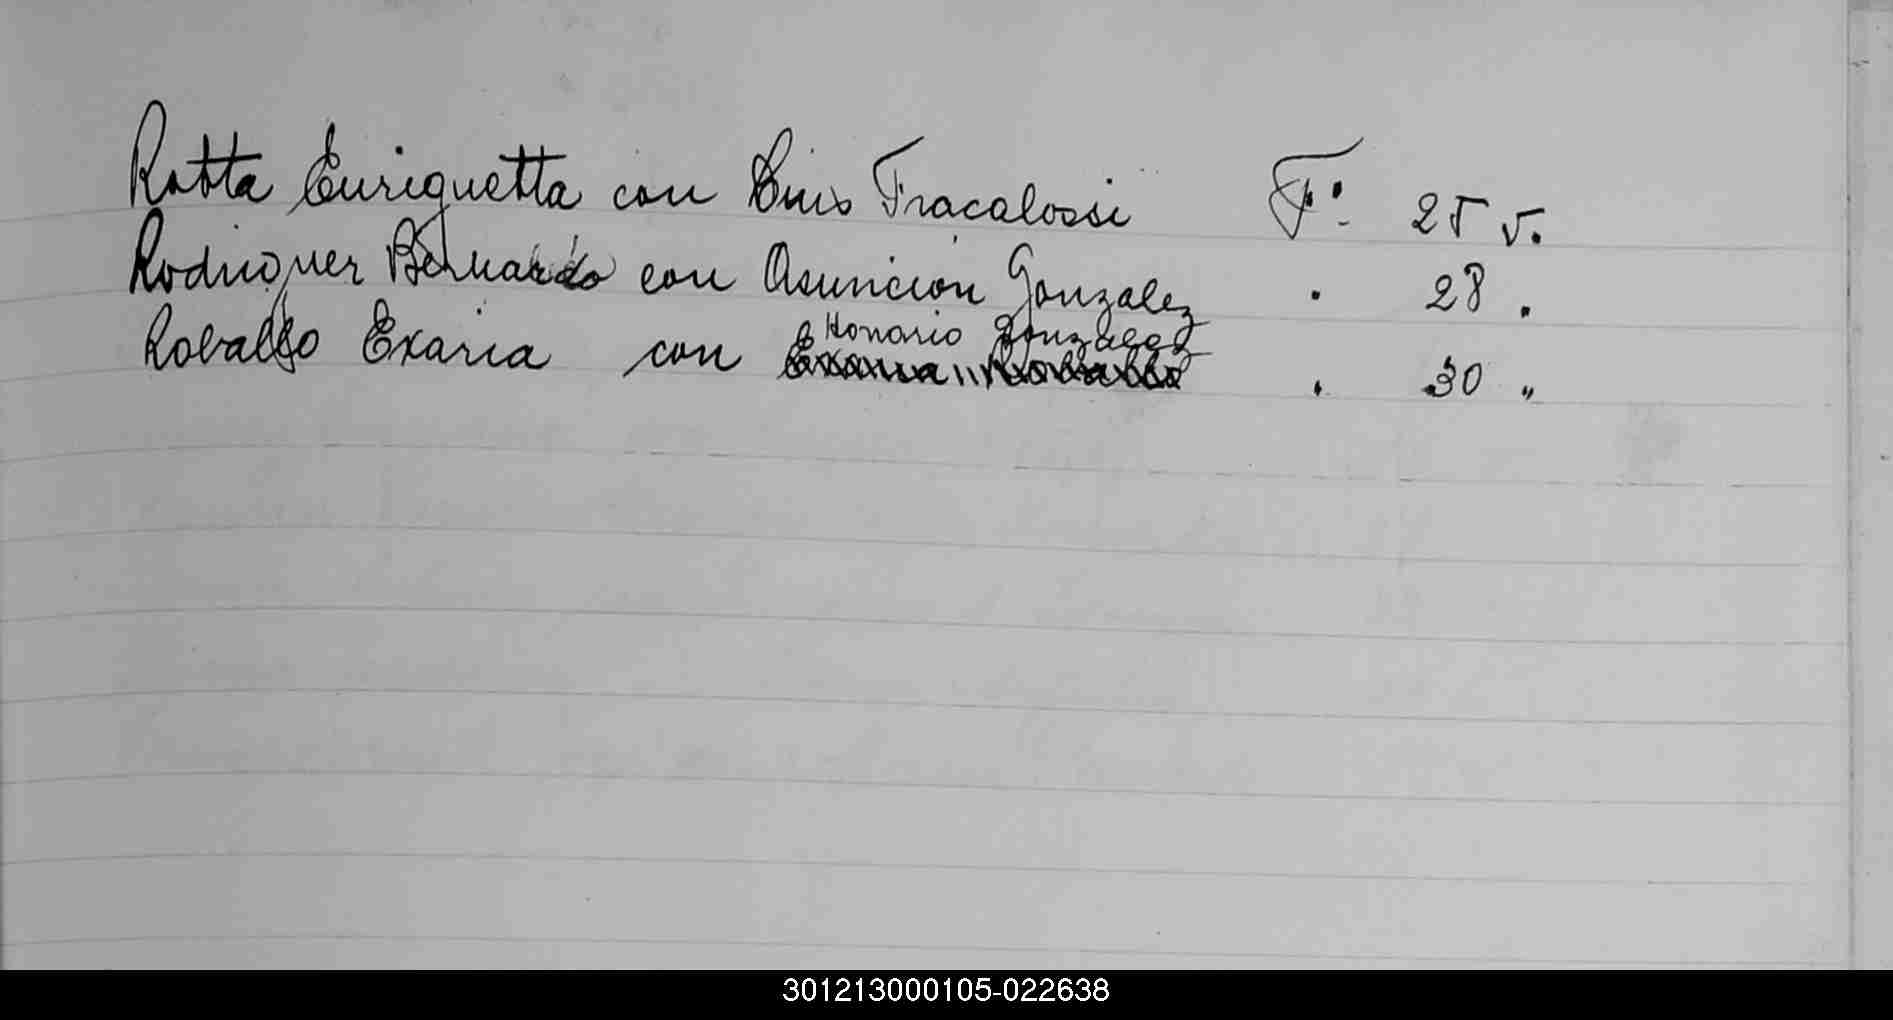 Rotta Enriquetta con Luis Fracalossi F.º 25 v.
Rodriguez Bernardo con Asuncion Gonzalez . 28 .
Honario Gonzalez
Roballo Exaria con . 30 "
301213000105-022638